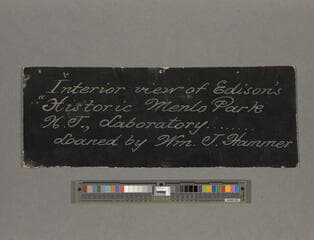 Interior view of Edison's
"Historic Menlo Park
N.J., Laboratory........
Loaned by Wm. J. Hammer